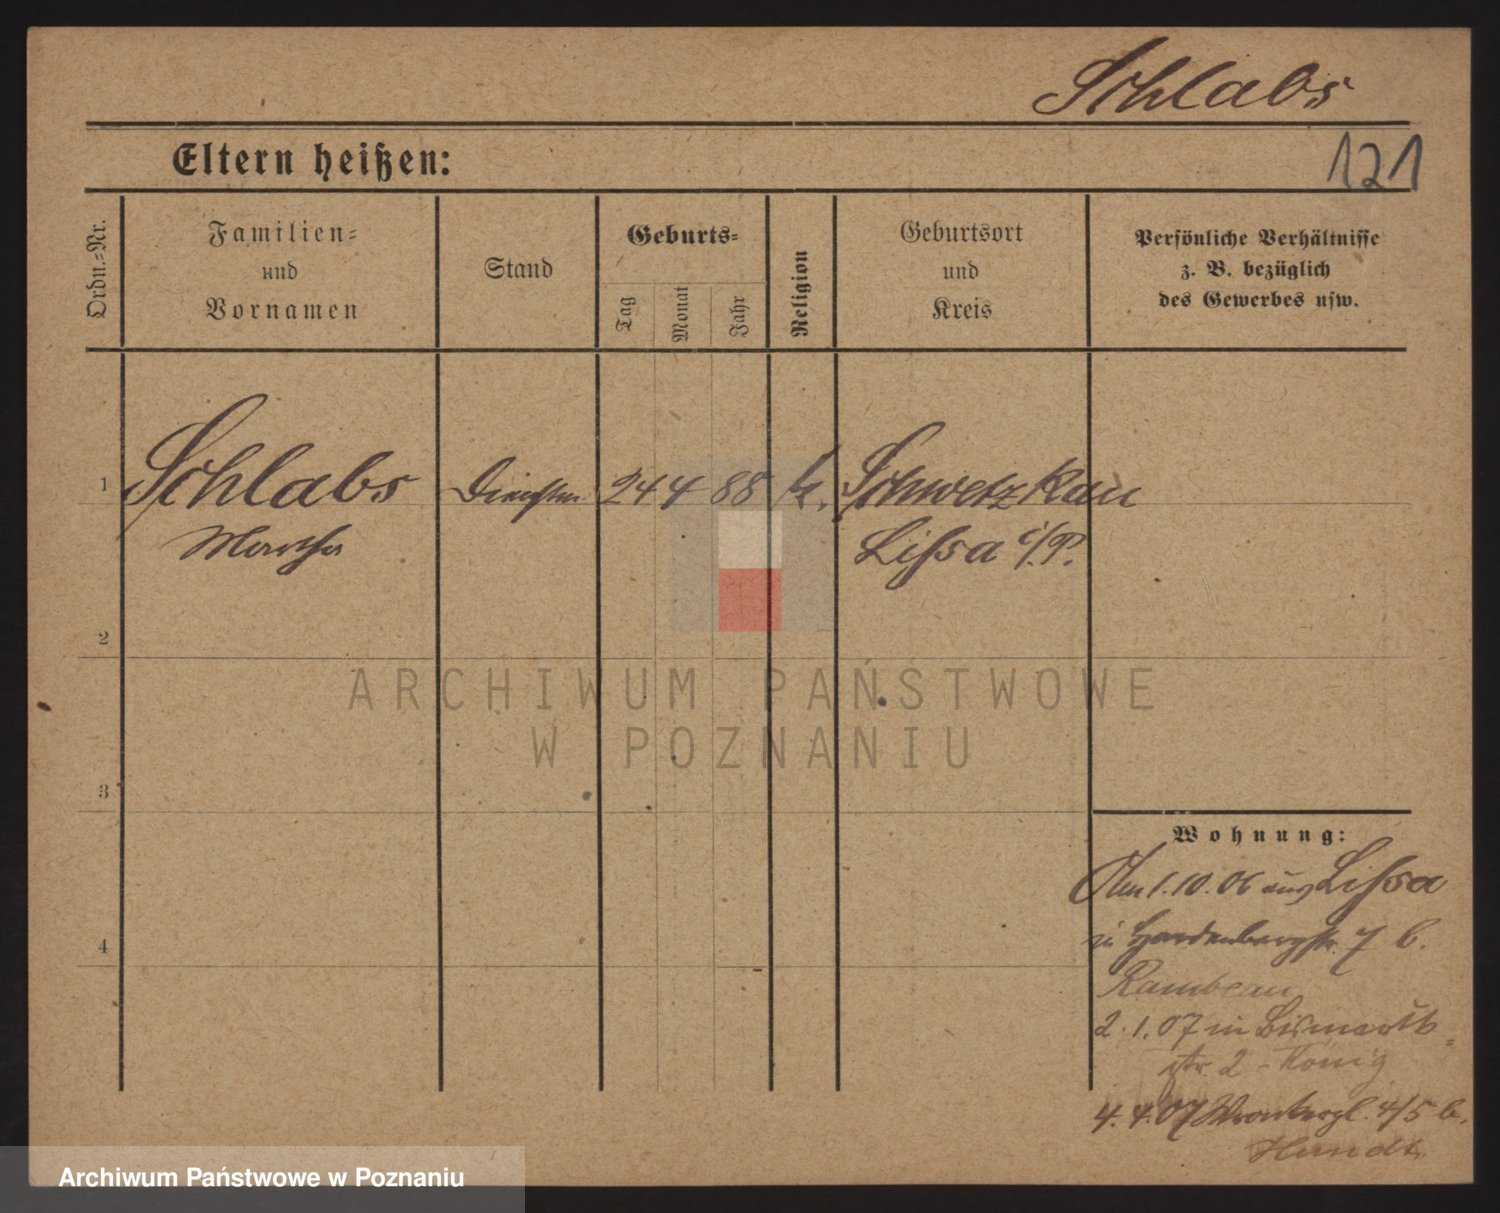 Schlabs
121
Eltern heißen:
Ordn.-Nr.
Familien-
und
Vornamen
Stand
Geburts-
Tag
Monat
Jahr
Religion
Geburtsort
und
Kreis
Persönliche Verhältnisse
z. B. bezüglich
des Gewerbes usw.
1 Schlabs 24 4 88 k. Schwetzkau
Martha Lissa i/P.
2
3
4
Wohnung:
Am 1.10.06 aus Lissa
in Hardenbergstr. 7 b.
Rambeau
2.1.07 in Bismarck-
str. 2 - König
4.4.07 4/5 b.
Hundt
ARCHIWUM PAŃSTWOWE
W POZNANIU
Archiwum Państwowe w Poznaniu